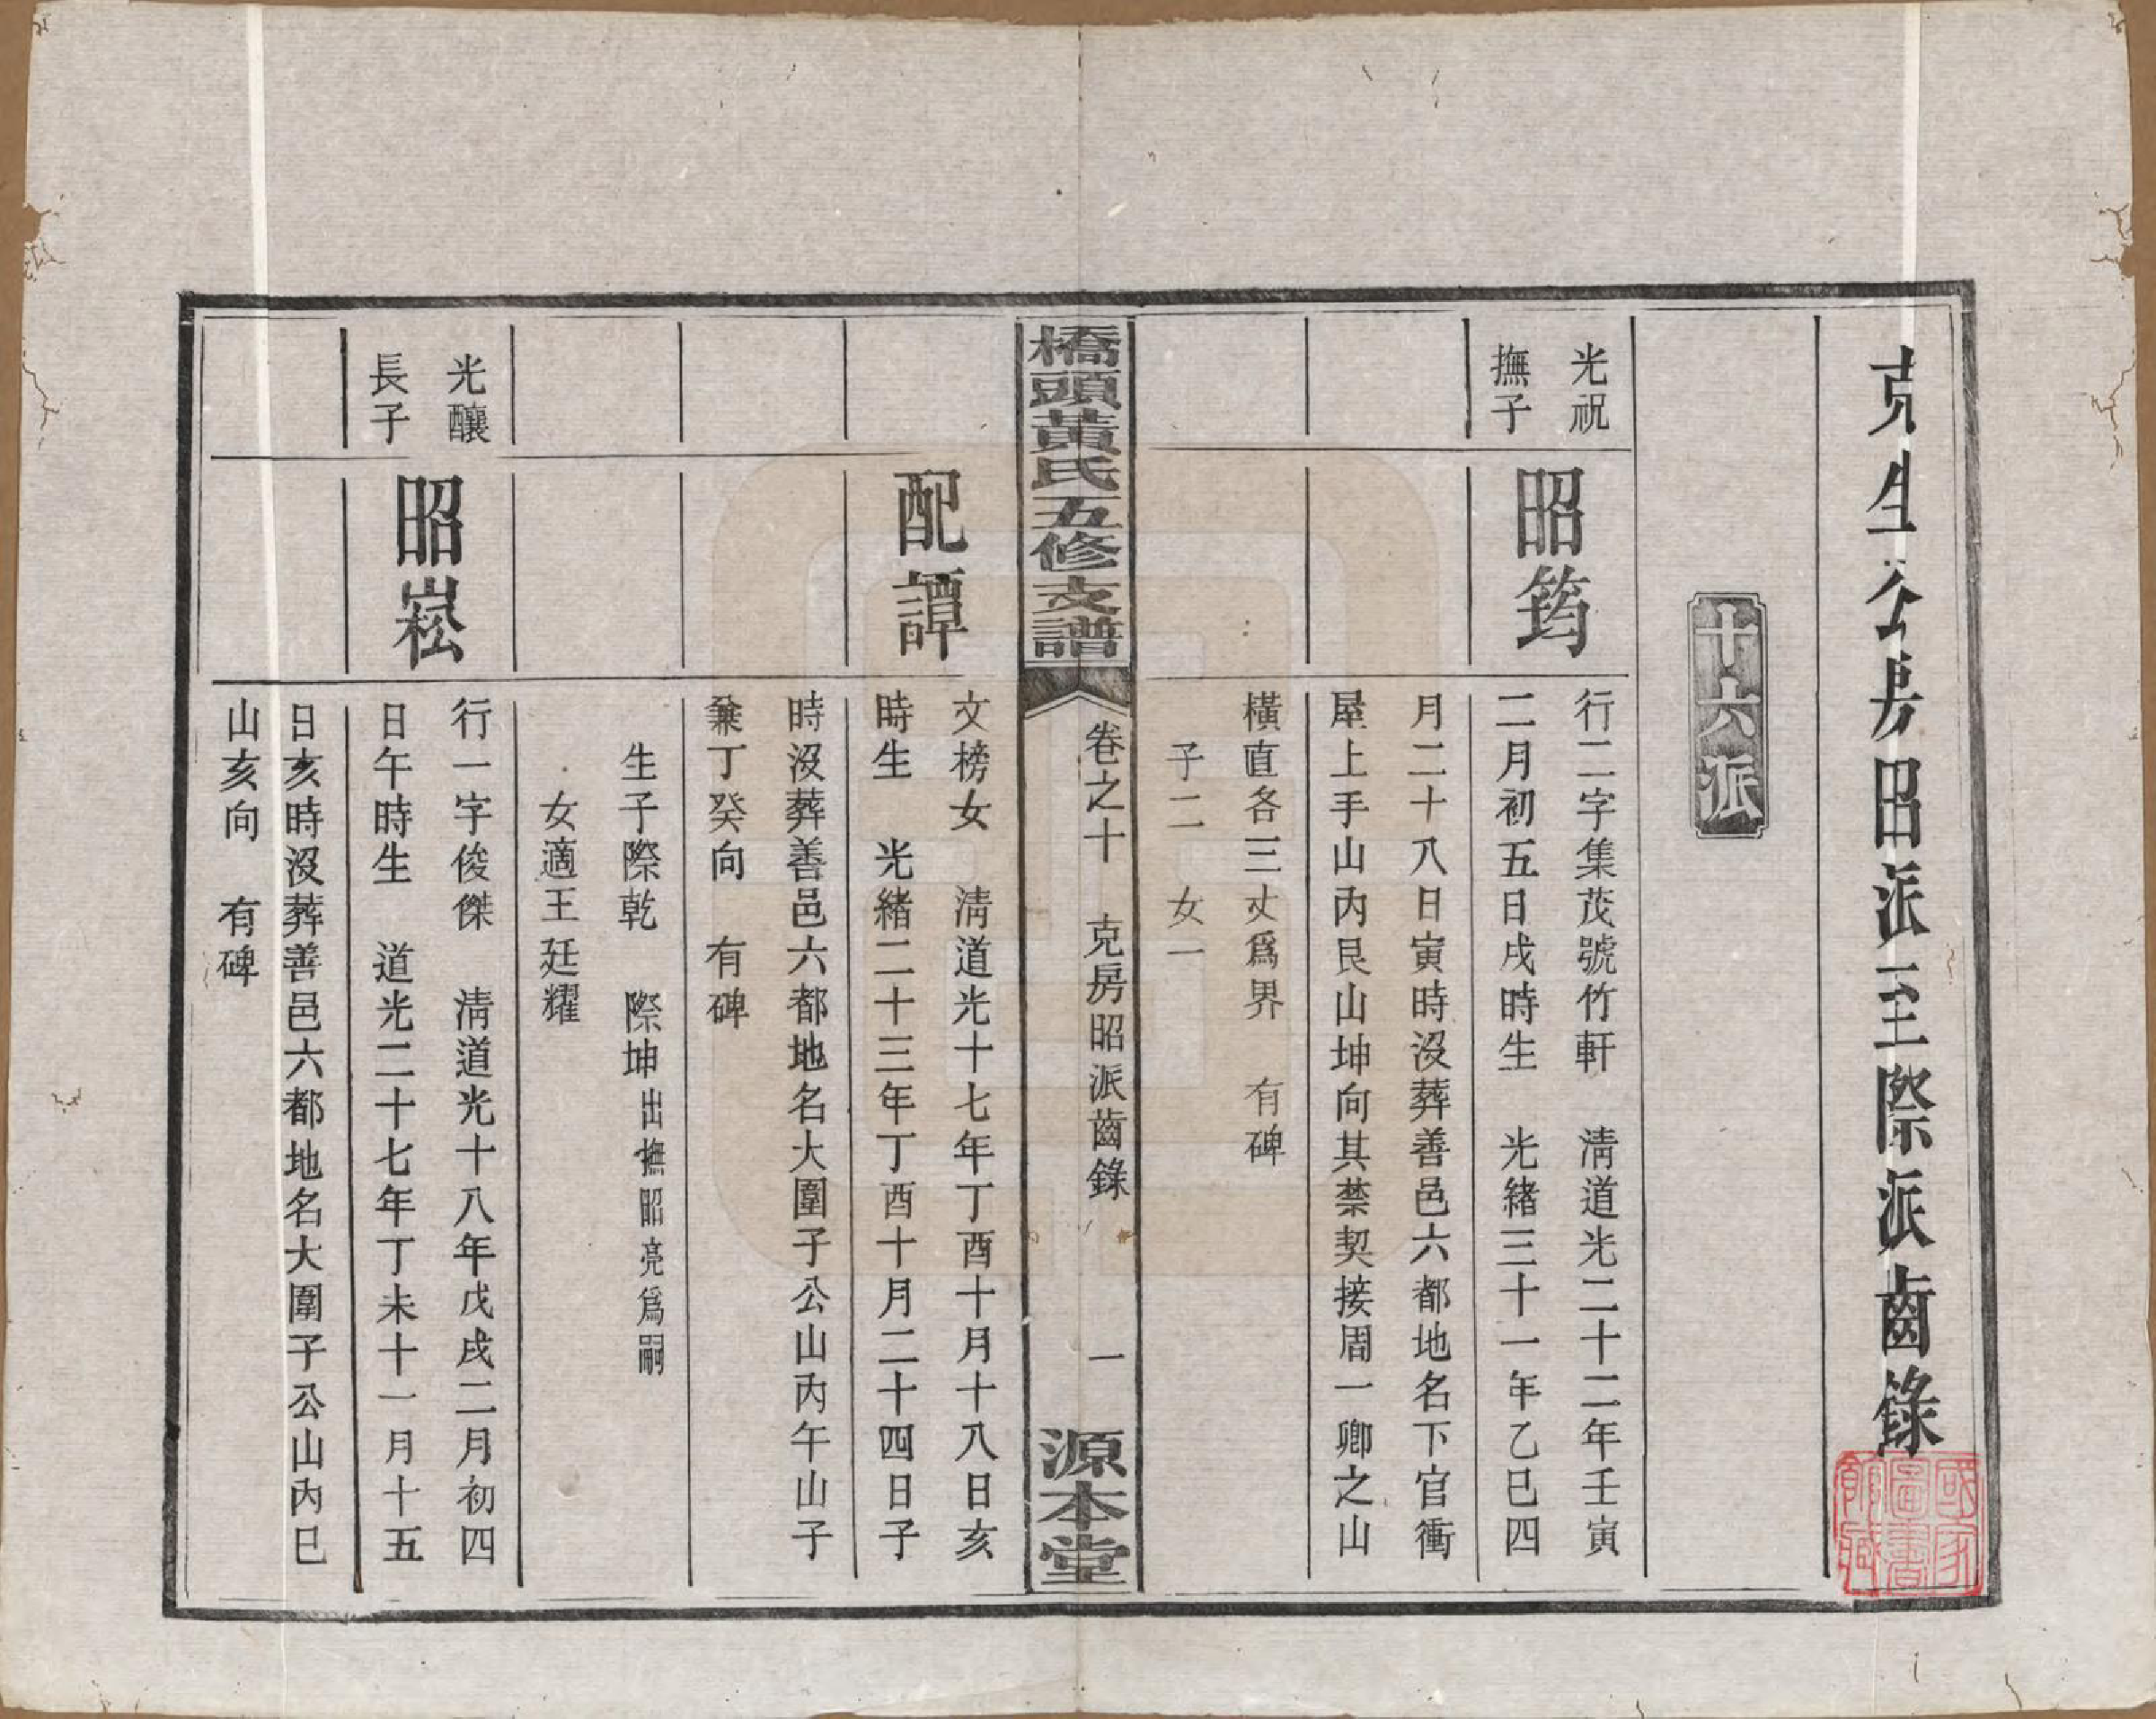 克生公房昭派至際派齒錄
十六派
光祝
撫子
昭筠
行二字集茂號竹軒　淸道光二十二年壬寅
二月初五日戌時生　光緖三十一年乙巳四
月二十八日寅時沒葬善邑六都地名下官衝
屋上手山內艮山坤向其禁契接周一卿之山
橫直各三丈爲界　有碑
子二　女一
橋頭黃氏五修支譜
卷之十　克房昭派齒錄
一
源本堂
配譚
文榜女　淸道光十七年丁酉十月十八日亥
時生　光緖二十三年丁酉十月二十四日子
時沒葬善邑六都地名大圍子公山內午山子
兼丁癸向　有碑
生子際乾　際坤出撫昭亮爲嗣
女適王廷耀
光釀
長子
昭崧
行一字俊傑　淸道光十八年戊戌二月初四
日午時生　道光二十七年丁未十一月十五
日亥時沒葬善邑六都地名大圍子公山內巳
山亥向　有碑
國家
圖書
館藏